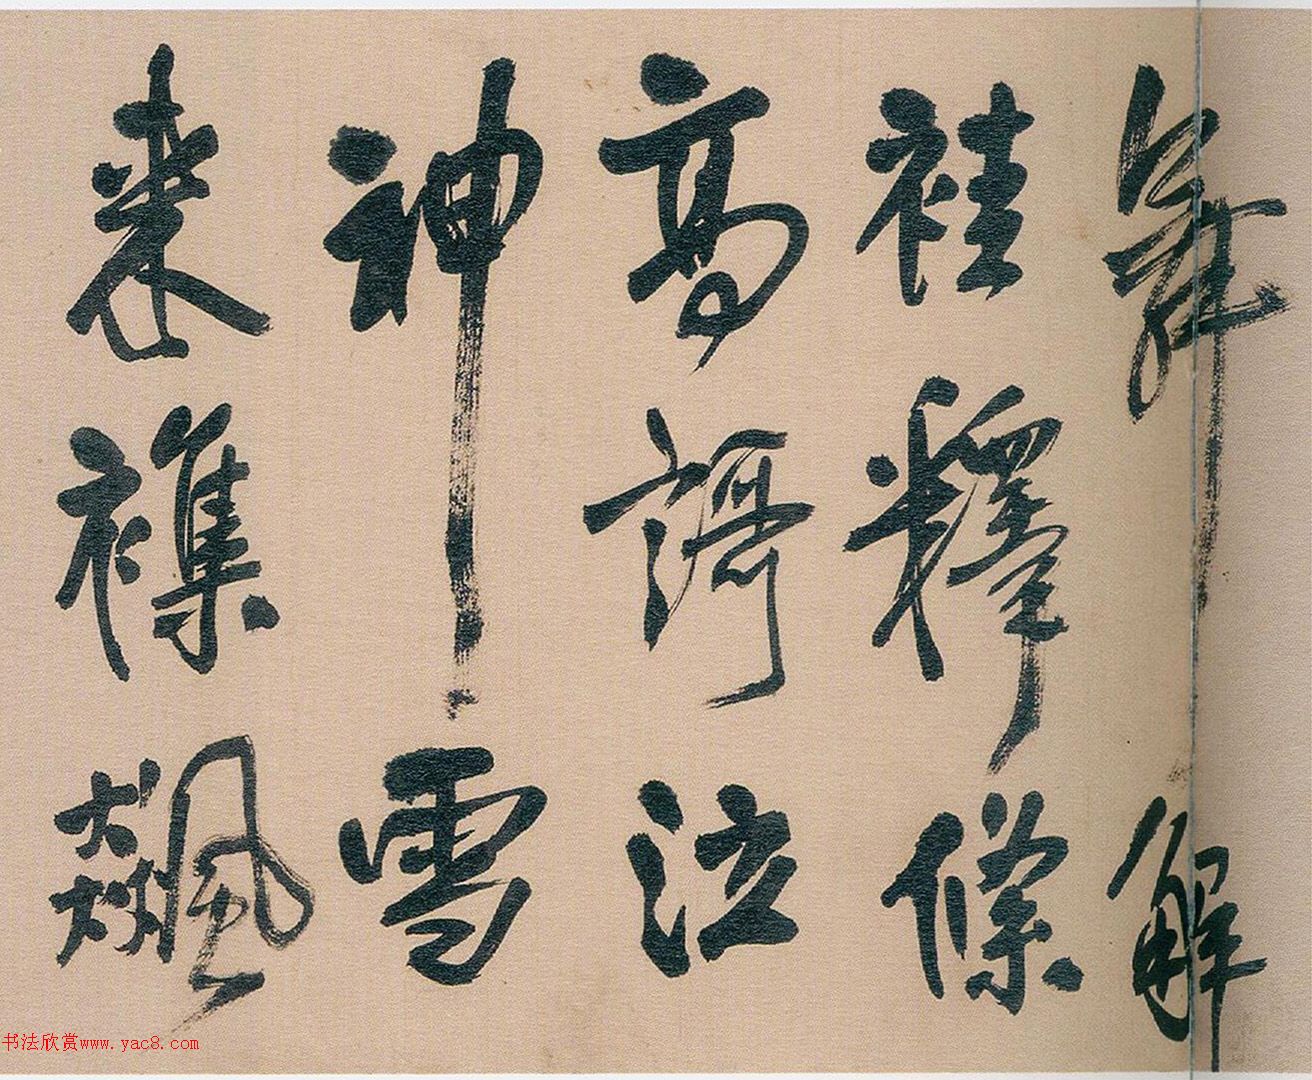 舞解
袿釋絛
高謌泣
神雪
來襍飆
书法欣赏www.yac8.com